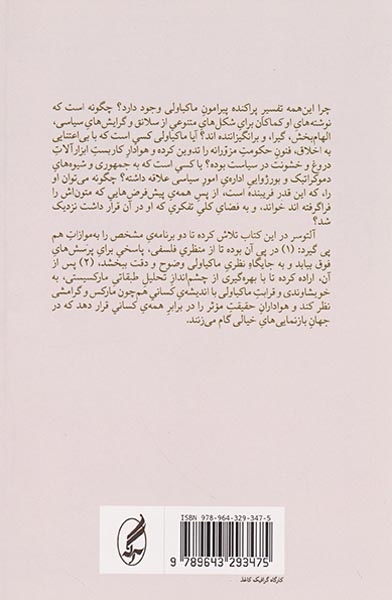 چرا این‌همه تفسیرِ پراکنده پیرامونِ ماکیاولی وجود دارد؟ چگونه است که
نوشته‌های او کماکان برای شکل‌های متنوعی از سلائق و گرایش‌هایِ سیاسی،
الهام‌بخش، گیرا، و برانگیزاننده اند؟ آیا ماکیاولی کسی است که با بی‌اعتنایی
به اخلاق، فنونِ حکومتِ مزوّرانه را تدوین کرده و هوادارِ کاربستِ ابزارآلاتِ
دروغ و خشونت در سیاست بوده؟ یا کسی است که به جمهوری و شیوه‌های
دموکراتیک و بورژواییِ اداره‌ی امورِ سیاسی علاقه داشته؟ چگونه می‌توان او
را، که این قدر فریبنده است، از پسِ همه‌ی پیش‌فرض‌هایی که متون‌اش را
فراگرفته اند خواند، و به فضایِ کلیِ تفکری که او در آن قرار داشت نزدیک
شد؟
آلتوسر در این کتاب تلاش کرده تا دو برنامه‌ی مشخص را به‌موازاتِ هم
پی گیرد: (۱) در پیِ آن بوده تا از منظری فلسفی، پاسخی برایِ پرسش‌هایِ
فوق بیابد و به جایگاهِ نظریِ ماکیاولی وضوح و دقت ببخشد، (۲) پس از
آن، اراده کرده تا با بهره‌گیری از چشم‌اندازِ تحلیلِ طبقاتیِ مارکسیستی، به
خویشاوندی و قرابتِ ماکیاولی با اندیشه‌یِ کسانی هم‌چون مارکس و گرامشی
نظر کند و هوادارانِ حقیقتِ مؤثر را در برابرِ همه‌ی کسانی قرار دهد که در
جهانِ بازنمایی‌هایِ خیالی گام می‌زنند.
ISBN 978-964-329-347-5
9 789643 293475
آگه
کارگاه گرافیک کاغذ